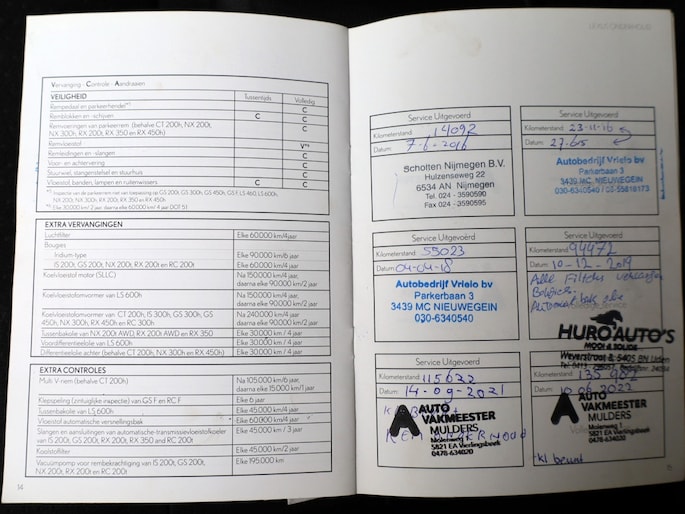 Vervanging · Controle · Aandraaien
VEILIGHEID Tussentijds Volledig
Rempedaal en parkeerhendel*³ C
Remblokken en -schijven C C
Remvoeringen van parkeerrem (behalve CT 200h, NX 200t,
NX 300h, RX 200t, RX 350 en RX 450h) C
Remvloeistof V*⁴
Remleidingen en -slangen C
Voor- en achtervering C
Stuurwiel, stangenstelsel en stuurhuis C
Vloeistof, banden, lampen en ruitenwissers C C
EXTRA VERVANGINGEN
Luchtfilter Elke 60.000 km/4 jaar
Bougies
Iridium-type Elke 90.000 km/6 jaar
IS 200t, GS 200t, NX 200t, RX 200t en RC 200t Elke 60.000 km/4 jaar
Koelvloeistof motor (SLLC) Na 150.000 km/4 jaar,
daarna elke 90.000 km/2 jaar
Koelvloeistofomvormer van LS 600h Na 150.000 km/4 jaar,
daarna elke 90.000 km/2 jaar
Koelvloeistofomvormer van CT 200h, IS 300h, GS 300h, GS
450h, NX 300h, RX 450h en RC 300h Na 240.000 km/4 jaar
daarna elke 90.000 km/2 jaar
Tussenbakolie van NX 200t AWD, RX 200t AWD en RX 350 Elke 30.000 km/2 jaar
Voordifferentieelolie van LS 600h Elke 30.000 km/ 4 jaar
Differentieelolie achter (behalve CT 200h, NX 300h en RX 450h) Elke 30.000 km/ 4 jaar
EXTRA CONTROLES
Multi V-riem (behalve CT 200h) Na 105.000 km/6 jaar,
daarna elke 15.000 km/1 jaar
Klepspeling (zintuiglijke inspectie) van GS F en RC F Elke 6 jaar
Tussenbakolie van LS 600h Elke 45.000 km/4 jaar
Vloeistof automatische versnellingsbak Elke 60.000 km/4 jaar
Slangen en aansluitingen van automatische-transmissievloeistofkoeler
van IS 200t, GS 200t, RX 200t, RX 350 and RC 200t Elke 45.000 km / 3 jaar
Koolstoffilter Elke 45.000 km/2 jaar
Vacuümpomp voor rembekrachtiging van IS 200t, GS 200t,
NX 200t, RX 200t en RC 200t Elke 195.000 km
14
LEXUS ONDERHOUD
Service Uitgevoerd
Kilometerstand: 14092
Datum: 7-6-2016
Scholten Nijmegen B.V.
Hulzenseweg 22
6534 AN Nijmegen
Tel. 024 - 3590590
Fax 024 - 3590595
Service Uitgevoerd
Kilometerstand: 23-11-16
Datum: 27.615
Autobedrijf Vrielo bv
Parkerbaan 3
3439 MC NIEUWEGEIN
Service Uitgevoerd
Kilometerstand: 55023
Datum: 04-04-18
Autobedrijf Vrielo bv
Parkerbaan 3
3439 MC NIEUWEGEIN
030-6340540
Service Uitgevoerd
Kilometerstand: 94472
Datum: 10-12-2019
Alle Filters
HURO AUTO'S
MOOI & SOLIDE
Service Uitgevoerd
Kilometerstand: 115622
Datum: 14-09-2021
AUTO
VAKMEESTER
MULDERS
Molenweg 1
5821 EA Vierlingsbeek
0478-634020
Kilometerstand: 135 982
10 06 2022
AUTO
VAKMEESTER
MULDERS
Molenweg 1
5821 EA Vierlingsbeek
0478-634020
- kl beurt